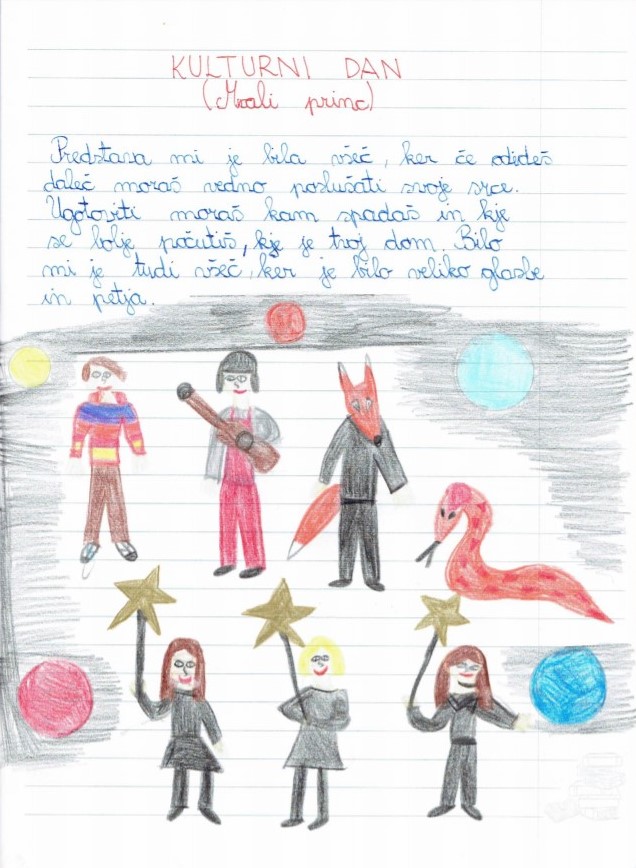 KULTURNI DAN
(Mali princ)
Predstava mi je bila všeč, ker če odideš
daleč moraš vedno poslušati svoje srce.
Ugotoviti moraš kam spadaš in kje
se bolje počutiš, kje je tvoj dom. Bilo
mi je tudi všeč, ker je bilo veliko glasbe
in petja.